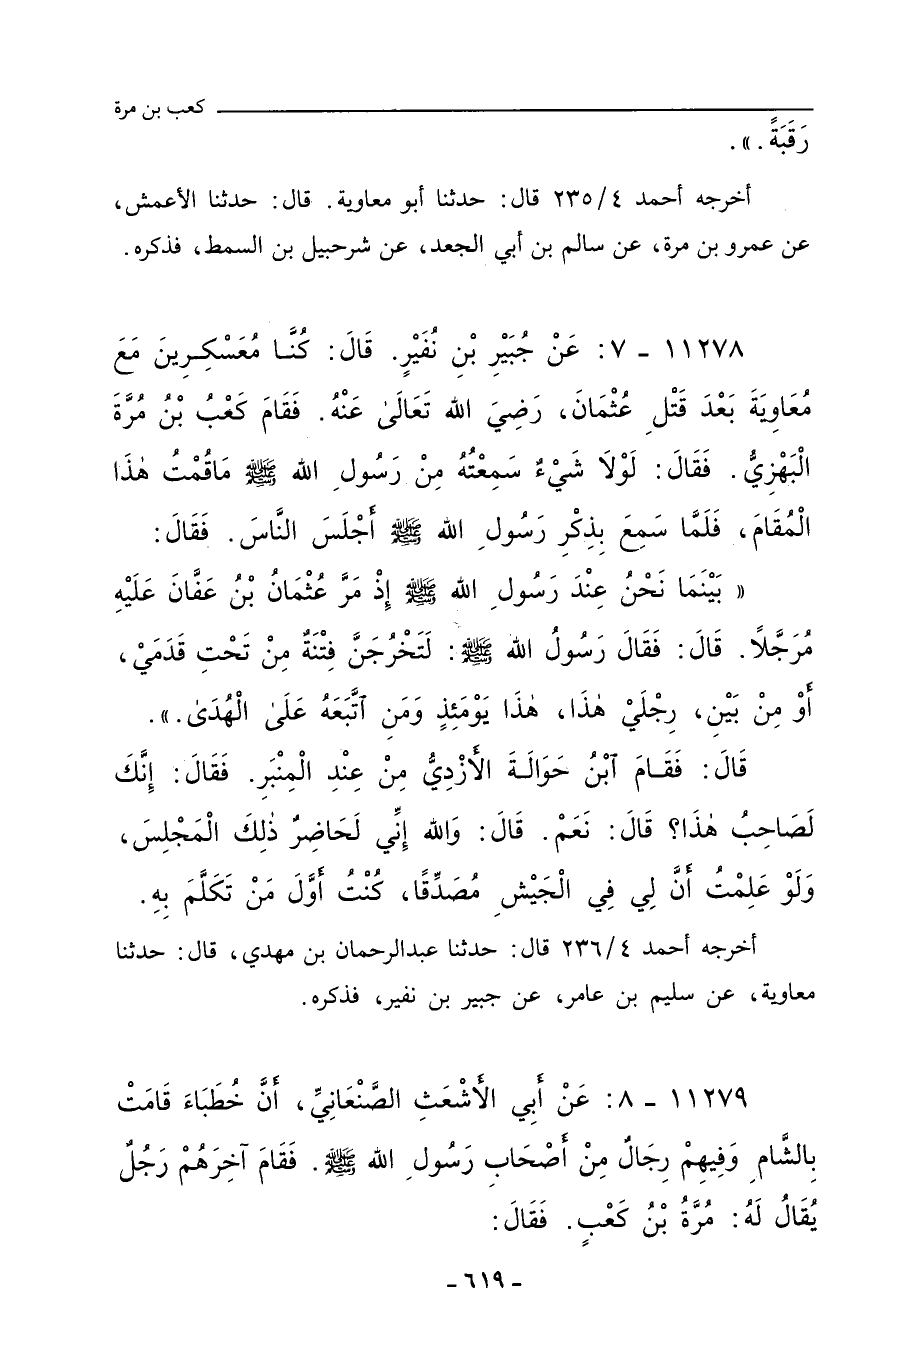 كعب بن مرة
رَقَبَةً . » .
أخرجه أحمد ٢٣٥/٤ قال: حدثنا أبو معاوية. قال: حدثنا الأعمش،
عن عمرو بن مرة، عن سالم بن أبي الجعد، عن شرحبيل بن السمط، فذكره.
١١٢٧٨ - ٧: عَنْ جُبَيْرِ بْنِ نُفَيْرٍ. قَالَ: كُنَّا مُعَسْكِرِينَ مَعَ
مُعَاوِيَةَ بَعْدَ قَتْلِ عُثْمَانَ، رَضِيَ الله تَعَالَىٰ عَنْهُ. فَقَامَ كَعْبُ بْنُ مُرَّةَ
الْبَهْزِيُّ. فَقَالَ: لَوْلَا شَيْءٌ سَمِعْتُهُ مِنْ رَسُولِ الله ﷺ مَاقُمْتُ هٰذَا
الْمُقَامَ، فَلَمَّا سَمِعَ بِذِكْرِ رَسُولِ الله ﷺ أَجْلَسَ النَّاسَ. فَقَالَ:
« بَيْنَمَا نَحْنُ عِنْدَ رَسُولِ الله ﷺ إِذْ مَرَّ عُثْمَانُ بْنُ عَفَّانَ عَلَيْهِ
مُرَجَّلًا. قَالَ: فَقَالَ رَسُولُ الله ﷺ: لَتَخْرُجَنَّ فِتْنَةٌ مِنْ تَحْتِ قَدَمَيْ،
أَوْ مِنْ بَيْنِ، رِجْلَيْ هٰذَا، هٰذَا يَوْمَئِذٍ وَمَنِ ٱتَّبَعَهُ عَلَىٰ الْهُدَىٰ.».
قَالَ: فَقَامَ ٱبْنُ حَوَالَةَ الأَزْدِيُّ مِنْ عِنْدِ الْمِنْبَرِ. فَقَالَ: إِنَّكَ
لَصَاحِبُ هٰذَا؟ قَالَ: نَعَمْ. قَالَ: وَالله إِنِّي لَحَاضِرٌ ذٰلِكَ الْمَجْلِسَ،
وَلَوْ عَلِمْتُ أَنَّ لِي فِي الْجَيْشِ مُصَدِّقًا، كُنْتُ أَوَّلَ مَنْ تَكَلَّمَ بِهِ.
أخرجه أحمد ٢٣٦/٤ قال: حدثنا عبدالرحمان بن مهدي، قال: حدثنا
معاوية، عن سليم بن عامر، عن جبير بن نفير، فذكره.
١١٢٧٩ - ٨: عَنْ أَبِي الأَشْعَثِ الصَّنْعَانِيِّ، أَنَّ خُطَبَاءَ قَامَتْ
بِالشَّامِ وَفِيهِمْ رِجَالٌ مِنْ أَصْحَابِ رَسُولِ الله ﷺ. فَقَامَ آخِرَهُمْ رَجُلٌ
يُقَالُ لَهُ: مُرَّةُ بْنُ كَعْبٍ. فَقَالَ:
- ٦١٩ -